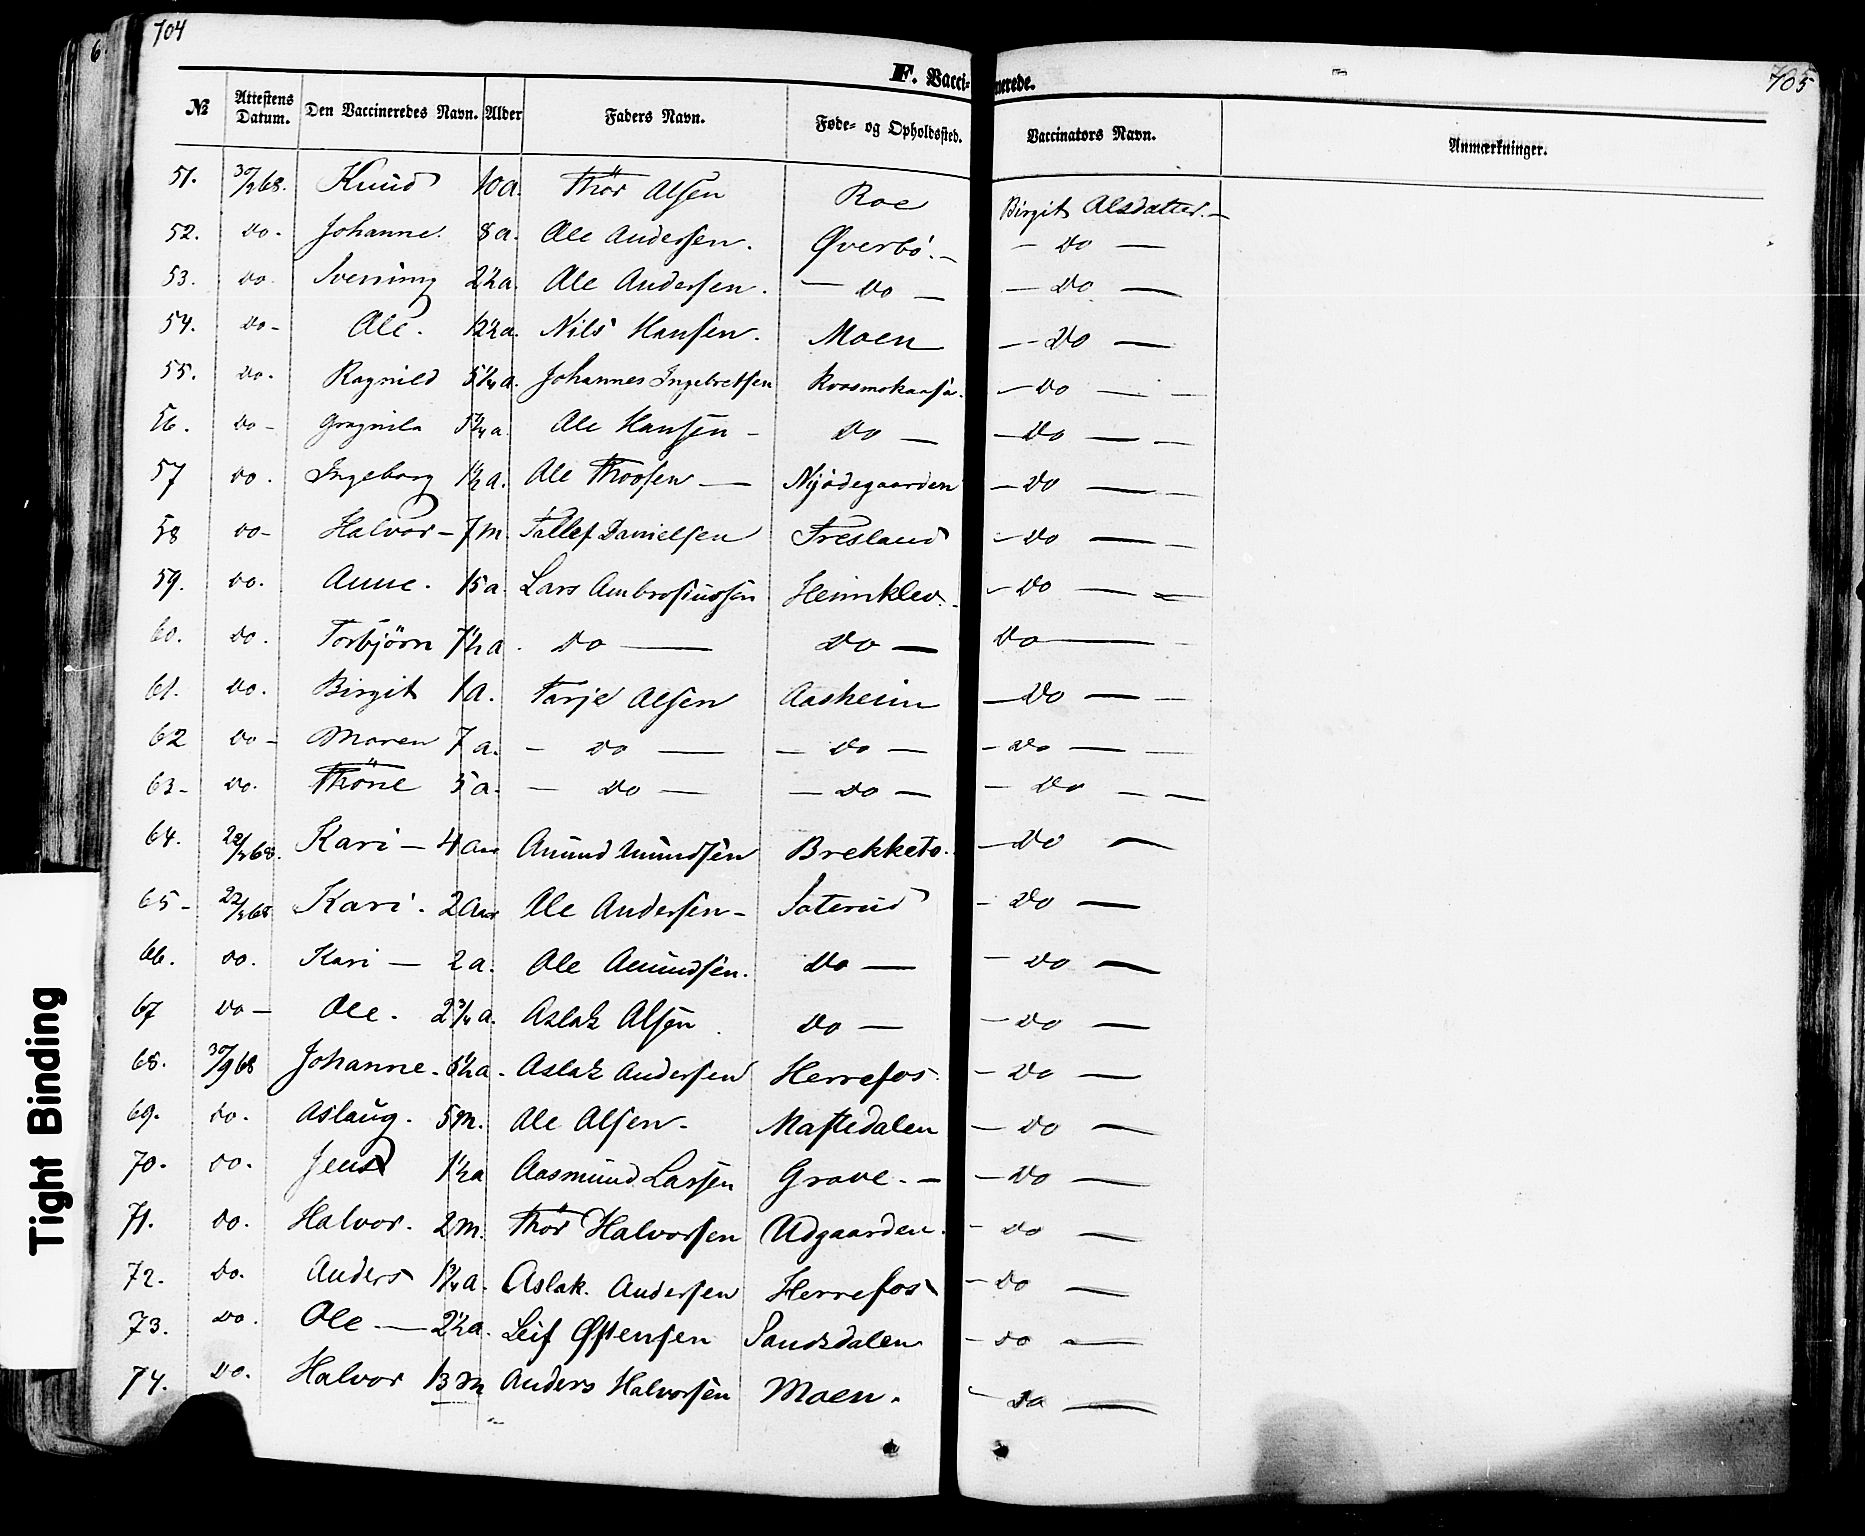 704
705
6
F. Vaccinerede.
№ Attestens Datum. Den Vaccineredes Navn. Alder Faders Navn. Føde- og Opholdssted. Vaccinators Navn. Anmærkninger.
51. 30/9 68. Knud 10 a. Thor Olsen Roe Birgit Olsdatter. —
52. do - Johanne. 8 a. Ole Andersen. Øverbö. — — do —
53. do Svenning 2½ a. Ole Andersen. — do — — do —
54. do - Ole. 12½ a. Nils Hansen. Moen — do —
55. do. Ragnild 5¼ a. Johannes Ingebretsen — do — —
56. do - 5¼ a. Ole Hansen - do — — do — —
57 do. Ingeborg 1½ a. Ole Thorsen — Nijödegaarden — do — —
58 do - Halvor - 7 m. Tallef Danielsen Fresland — do — —
59. do. Anne. 15 a. Lars Ambrosiussen Heimklev. — do — —
60. do. Torbjörn 7½ a. do — do — do — —
61. do. Birgit 1 a. Tarje Olsen Aasheim — do — —
62 do - Maren 7 a. — do — — do — — do — —
63 - do. Thöne 5 a. — do — — do — — do — —
64. 22/ 68. Kari — 4 Aar Amund Amundsen Brekketo. — do —
65 - 22/ 68 Kari. 2 Aar Ole Andersen - Saterud — do —
66. do. Kari — 2 a. Ole Amundsen. do — — do —
67 do — Ole. 2¾ a. Aslak Olsen. do — — do —
68. 30/9 68 Johanne. 6½ a. Aslak Andersen Herrefos. — do —
69. do. Aslaug. 5 m. Ole Olsen. Mastedalen — do —
70. do. Jens 1½ a Aasmund Larsen Grave. — — do —
71. do. Halvor. 2 m. Thor Halvorsen Udgaarden. — do —
72. do. Anders 1¾ a. Aslak. Andersen Herrefos — do —
73. do. Ole — 2½ a. Leif Østensen Sandsdalen — do —
74. do. Halvor 13 m Anders Halvorsen Moen. — do —
Tight Binding